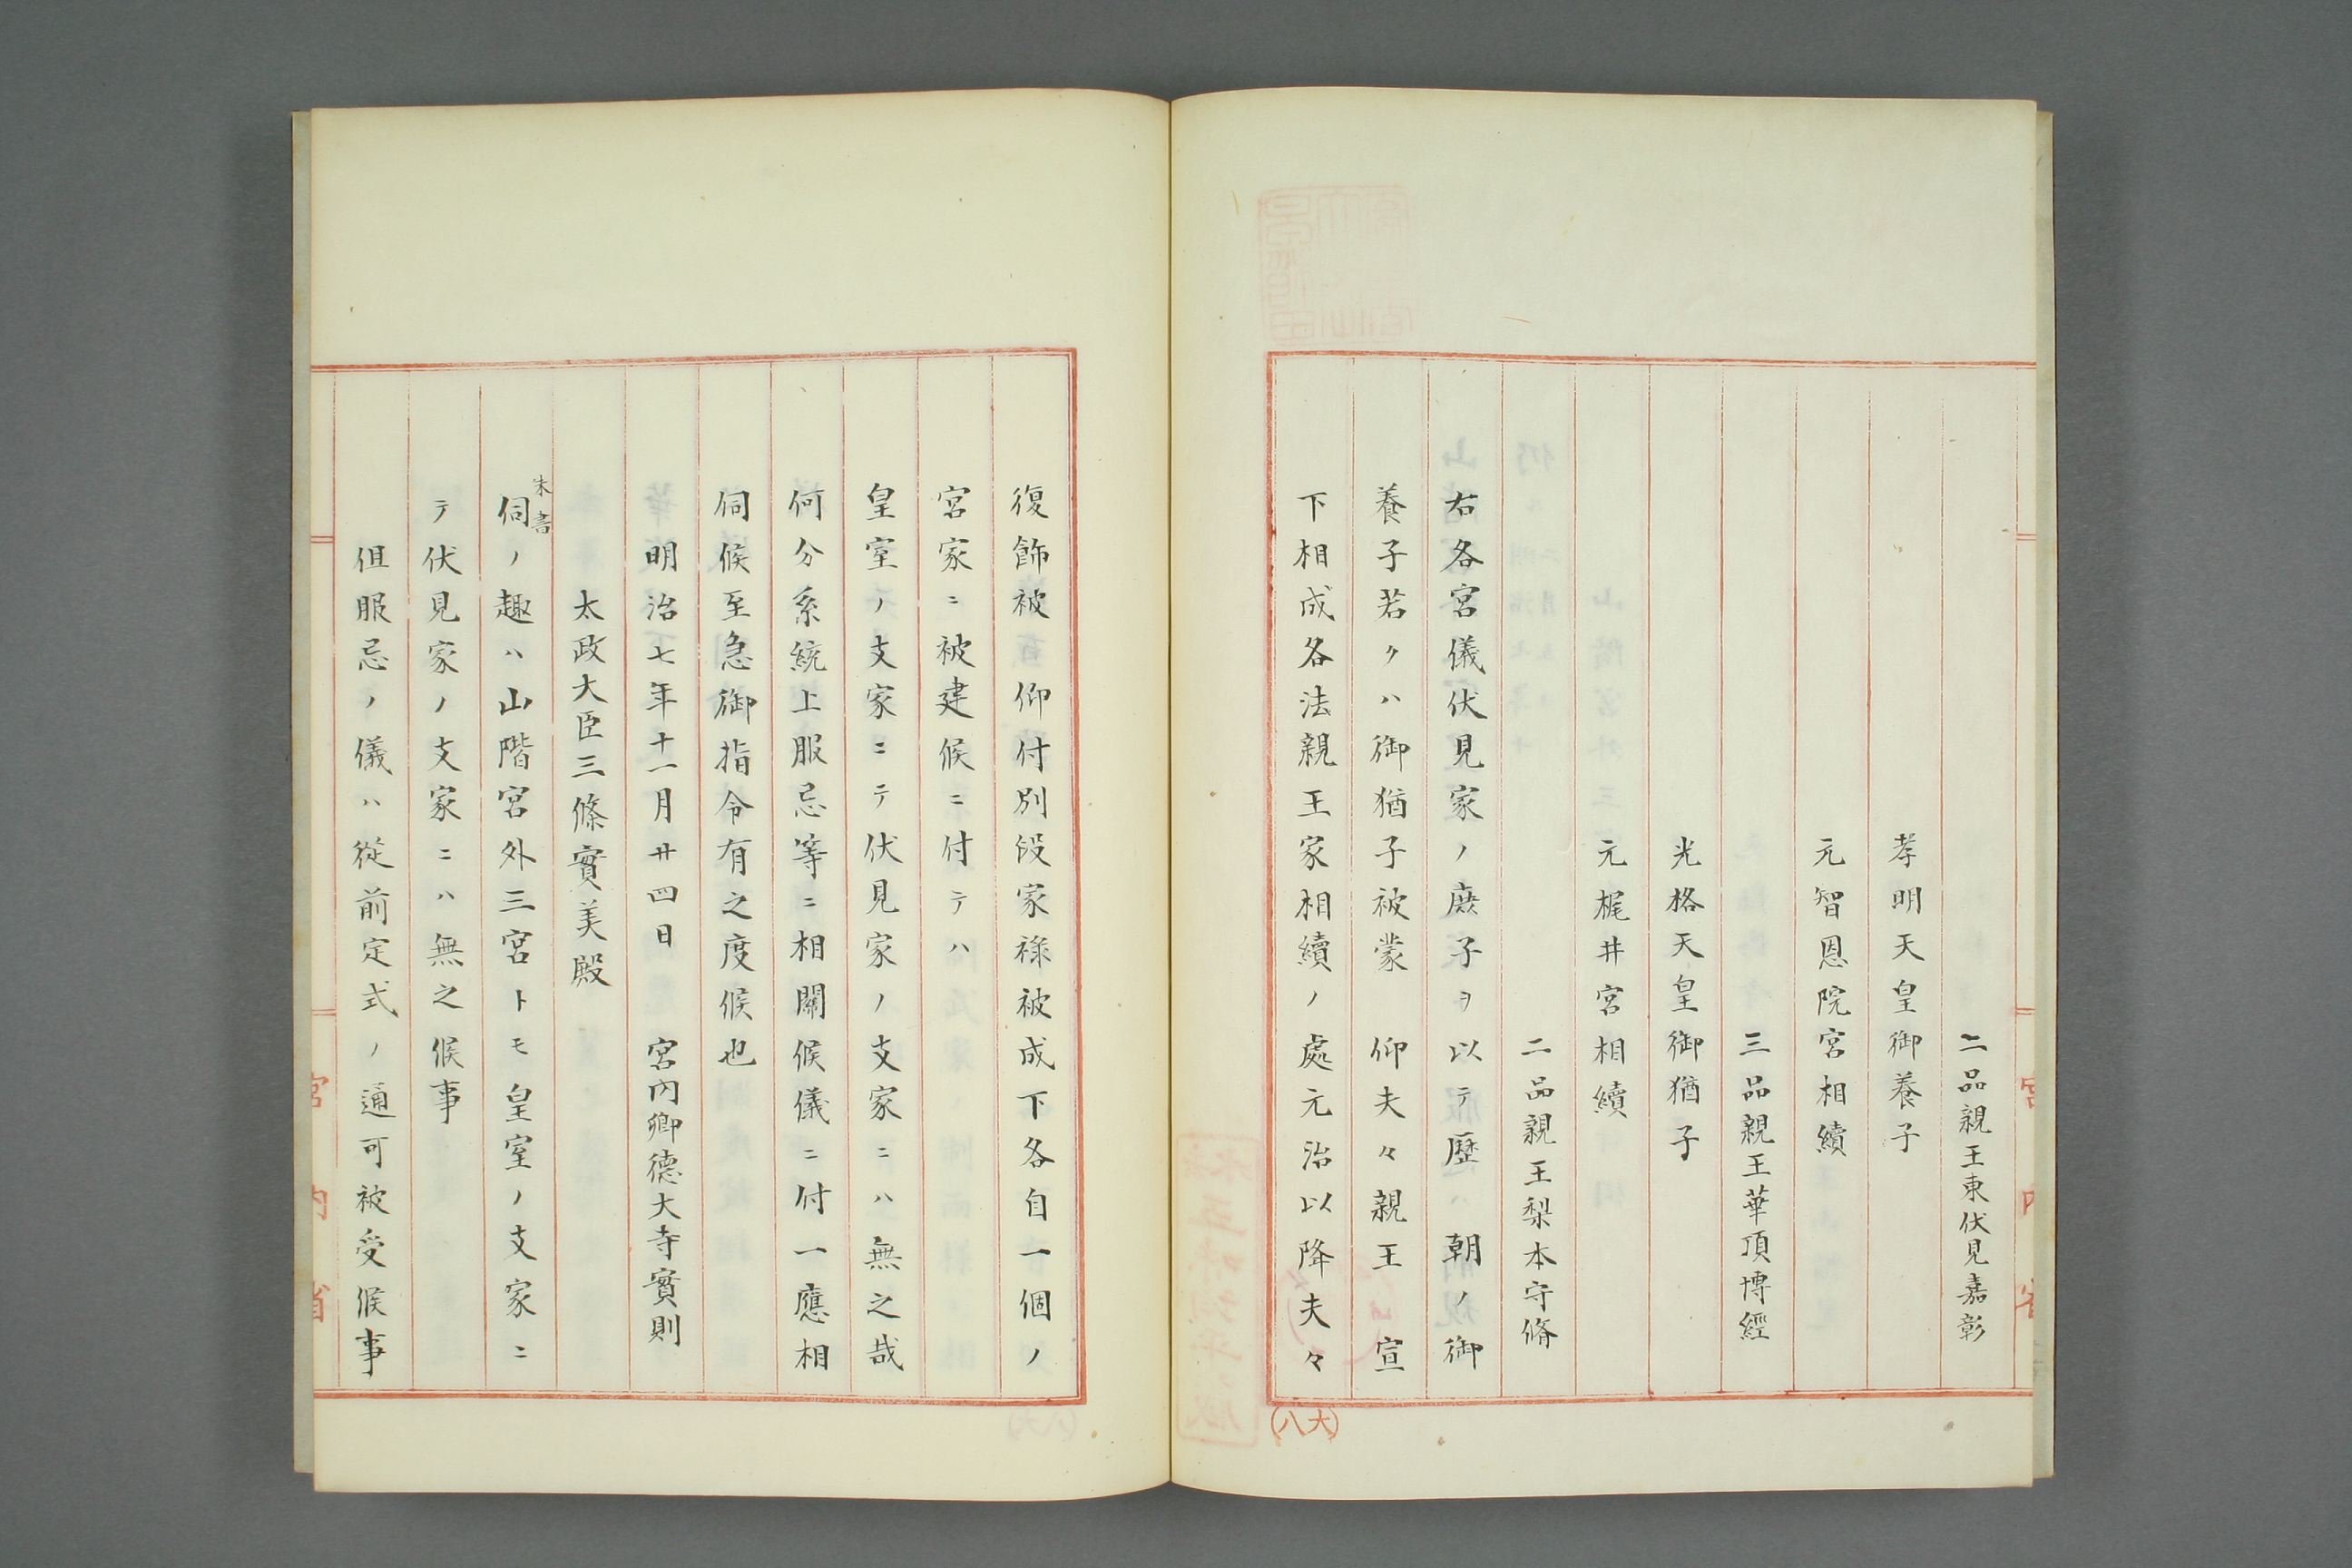 二品親王東伏見嘉彰
孝明天皇御養子
元智恩院宮相續
三品親王華頂博經
光格天皇御猶子
元梶井宮相續
二品親王梨本守脩
右各宮儀伏見家ノ庶子ヲ以テ歷朝ノ御
養子若クハ御猶子被蒙　仰夫々親王宣
下相成各法親王家相續ノ處元治以降夫々
(八大)
復飾被仰付別段家祿被成下各自一個ノ
宮家ニ被建候ニ付テハ
皇室ノ支家ニテ伏見家ノ支家ニハ無之哉
何分系統上服忌等ニ相關候儀ニ付一應相
伺候至急御指令有之度候也
明治七年十一月廿四日　宮内卿德大寺實則
太政大臣三條實美殿
朱書
伺ノ趣ハ山階宮外三宮トモ皇室ノ支家ニ
テ伏見家ノ支家ニハ無之候事
但服忌ノ儀ハ從前定式ノ通可被受候事
宮内省